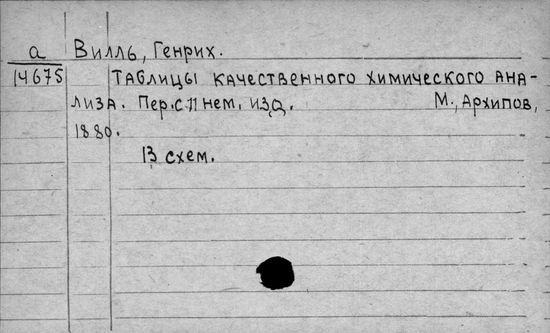 а Вилль, Генрих.
14675 Таблицы качественного химического ана-
лиза. Пер. с 11 нем. изд. М., Архипов,
1880.
13 схем.